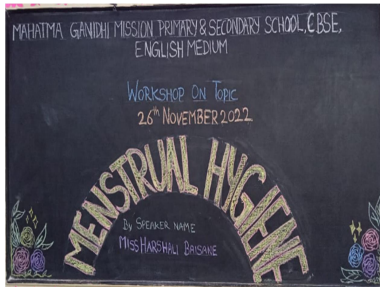 MAHATMA GANIDHI MISSION PRIMARY & SECONDARY SCHOOL, CBSE,
ENGLISH MEDIUM
WORKSHOP ON TOPIC
26th NOVEMBER 2022
MENSTRUAL HYGIENE
By SPEAKER NAME
MISS HARSHALI BAISANE